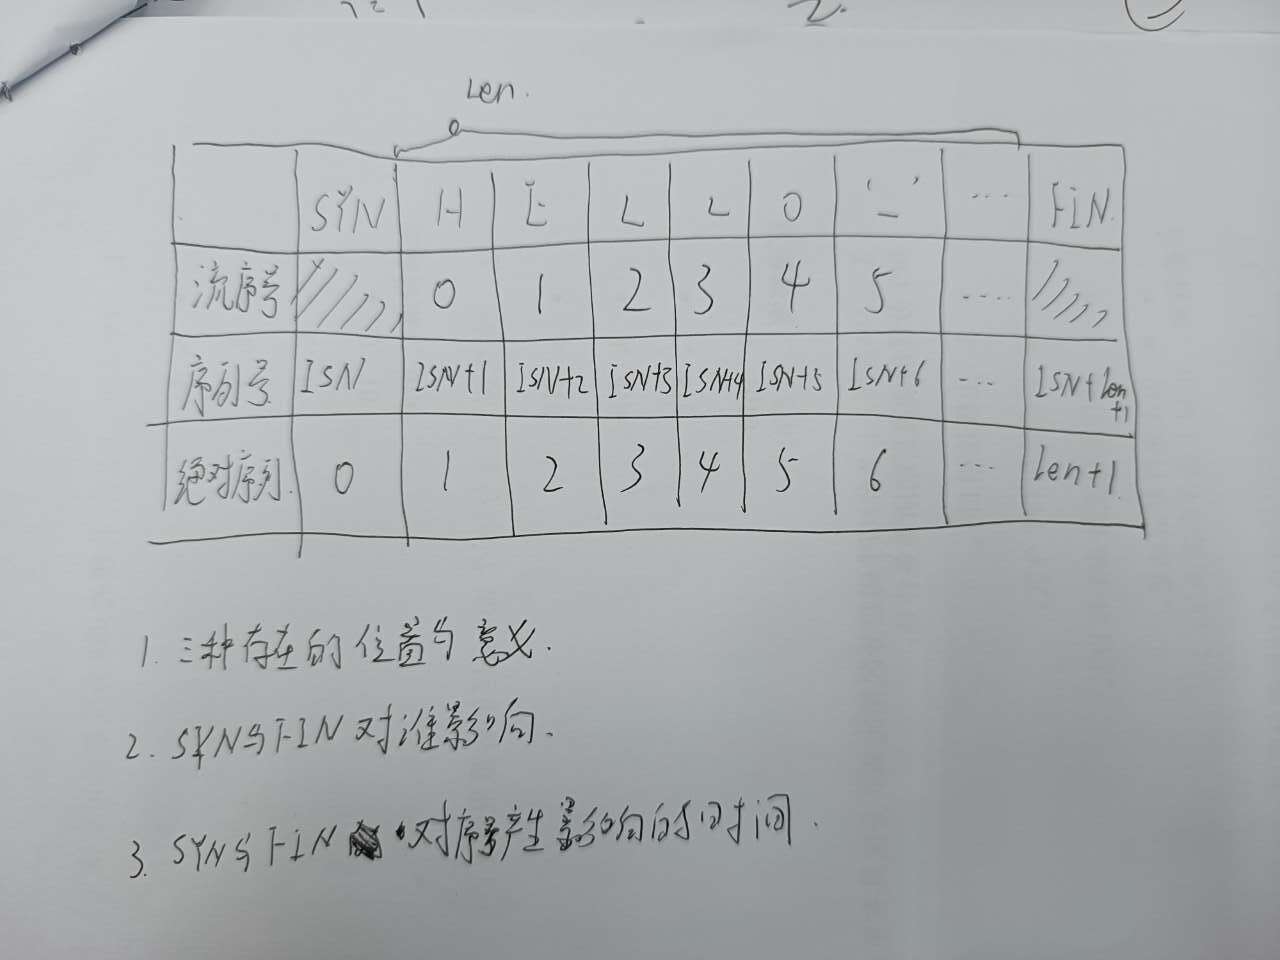 Len.
SYN H E L L O '_' ... FIN.
流序号 0 1 2 3 4 5 ....
序列号 ISN ISN+1 ISN+2 ISN+3 ISN+4 ISN+5 ISN+6 ... ISN+len+1
绝对序列. 0 1 2 3 4 5 6 ... len+1.
1. 三种存在的位置与意义.
2. SYN与FIN对谁影响.
3. SYN与FIN 对序号产生影响的时间.